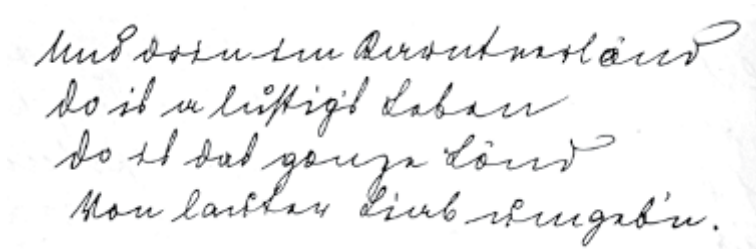 Und drin im Karntnerlånd
Do is a lustig's Leben
Do is das gonze Lönd
Von lauter Lieb umgeb'n.